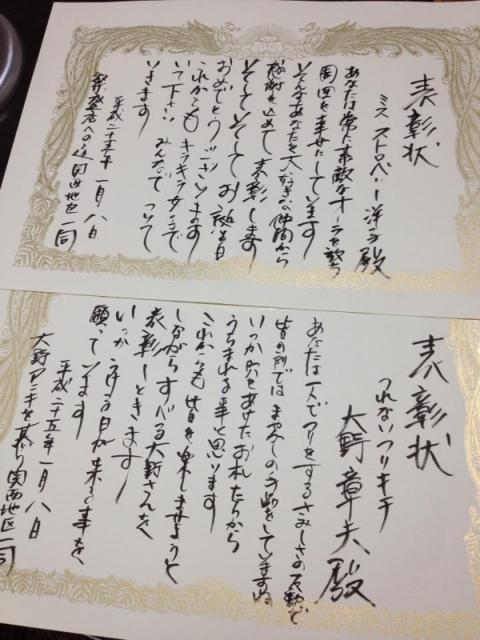 表彰状
ミス ストロベリー 洋子殿
あなたは常に素敵なオーラを放ち
周囲を幸せにしています
そんなあなたを大好きな仲間から
感謝を込めて 表彰します
そしてそして お誕生日
おめでとうございます
これからも キラキラ女子で
いて下さい みんなで ついて
いきます
平成二十五年一月八日
関西地区一同
表彰状
つれないつりキチ
大野章夫殿
あなたは一人でつりをするさみしさの反動で
皆の前では
いっか
うちまれる事と思います
これからも 皆を楽しませようと
しながらすべる大野さんを
表彰しときます
いつか うける日が来る事を
願っています
平成二十五年一月八日
大野アニキを慕う関西地区一同